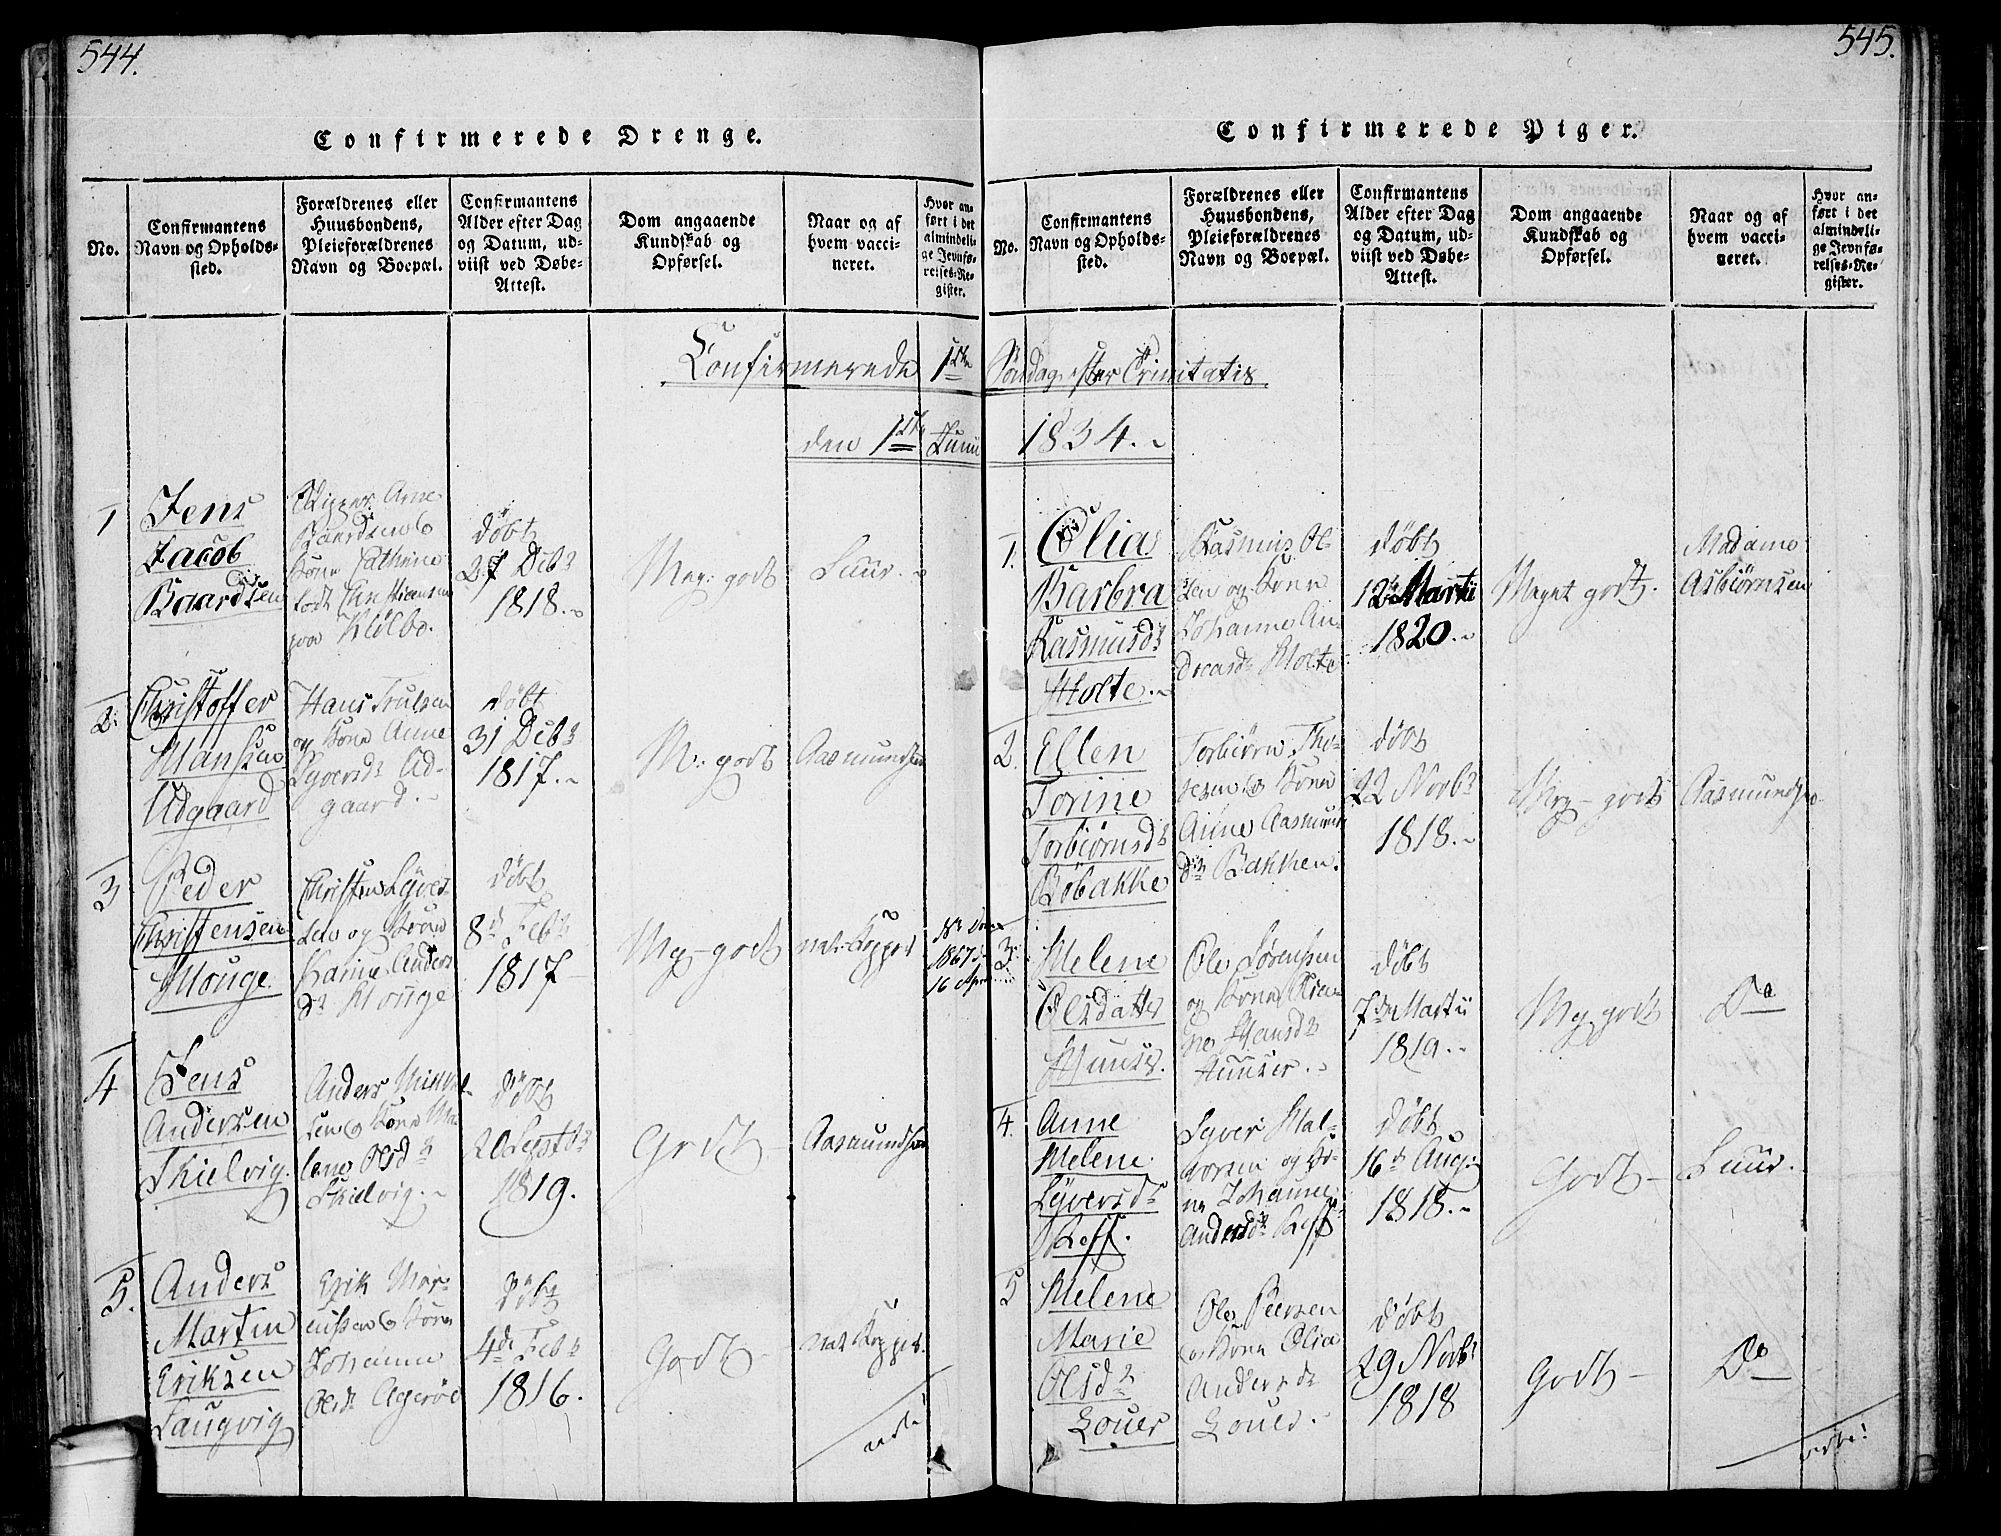 544.
Confirmerede Drenge.
No.
Confirmantens
Navn og Opholds-
sted.
Forældrenes eller
Huusbondens,
Pleieforældrenes
Navn og Boepæl.
Confirmantens
Alder efter Dag
og Datum, ud-
viist ved Døbe-
Attest.
Dom angaaende
Kundskab og
Opførsel.
Naar og af
hvem vacci-
neret.
Hvor an-
ført i det
almindeli-
ge Jevnfø-
relses-Re-
gister.
Confirmerede 1ste
den 1ste Junii
1
Jens
Jacob
Baardsen
Arne
Baardsen &
Kone Cathrine
Christiansen
paa
døbt
27 Debr
1818.
Meg: godt
Luur.
2.
Christoffer
Hansen
Udgaard
Hans Trulsen
og Kone Anne
Syversdr Ud-
gaard.
døbt
31 Debr
1817.
M: godt
Aasmundsen
3
Peder
Christensen
Houge.
Christen Syver-
sen og Kone
Karine Anders
dr Houge
døbt
8de Febr
1817
Mg- godt
nat: Kopper
1867
16
4
Jens
Andersen
Skielvig.
Anders Mikkel-
sen & Kone Ma-
lene Olsdr
Skielvig.
døbt
20 Septbr
1819.
Godt
Aasmundsen
5.
Anders
Martin
Eriksen
Laugvig
Erik Mor-
tensen & Kone
Johanne
Olsdr Agerød
døbt
4de Febr
1816.
Godt
nat Kopper.
vdte!
545.
Confirmerede Piger.
No.
Confirmantens
Navn og Opholds-
sted.
Forældrenes eller
Huusbondens,
Pleieforældrenes
Navn og Boepæl.
Confirmantens
Alder efter Dag
og Datum, ud-
viist ved Døbe-
Attest.
Dom angaaende
Kundskab og
Opførsel.
Naar og af
hvem vacci-
neret.
Hvor an-
ført i det
almindeli-
ge Jevnfø-
relses-Re-
gister.
Søndag efter Trinitatis
1834.
1.
Olia
Barbra
Rasmusdr
Holte.
Rasmus Ol-
sen og Kone
Johanne An-
dreasdr Holte
døbt
12te Martii
1820.
Meget godt.
Madame
Asbiørnsen
2.
Ellen
Torine
Torbiørnsdr
Bøbakke
Torbiørn Tho-
resen & Kone
Anne Aasmun
dsdr Bakken.
døbt
22 Novbr
1818.
Meg- godt
Aasmundsen
3.
Helene
Olsdatter
Huuser.
Ole Sørensen
og Kone
Hansdr
Huuser.
døbt
7de Martii
1819.
Mg. godt
Do
4.
Anne
Helene
Syversdr
Ræff.
Syver Hal-
vorsen og Ko-
ne Johanne
Andersdr Ræff
døbt
16de Aug:
1818.
Godt
Luur.
5
Helene
Marie
Olsdr
Louer
Ole Peersen
& Kone Olia
Andersdr
Louer.
døbt
29 Novbr
1818
Godt
Do
vdte!